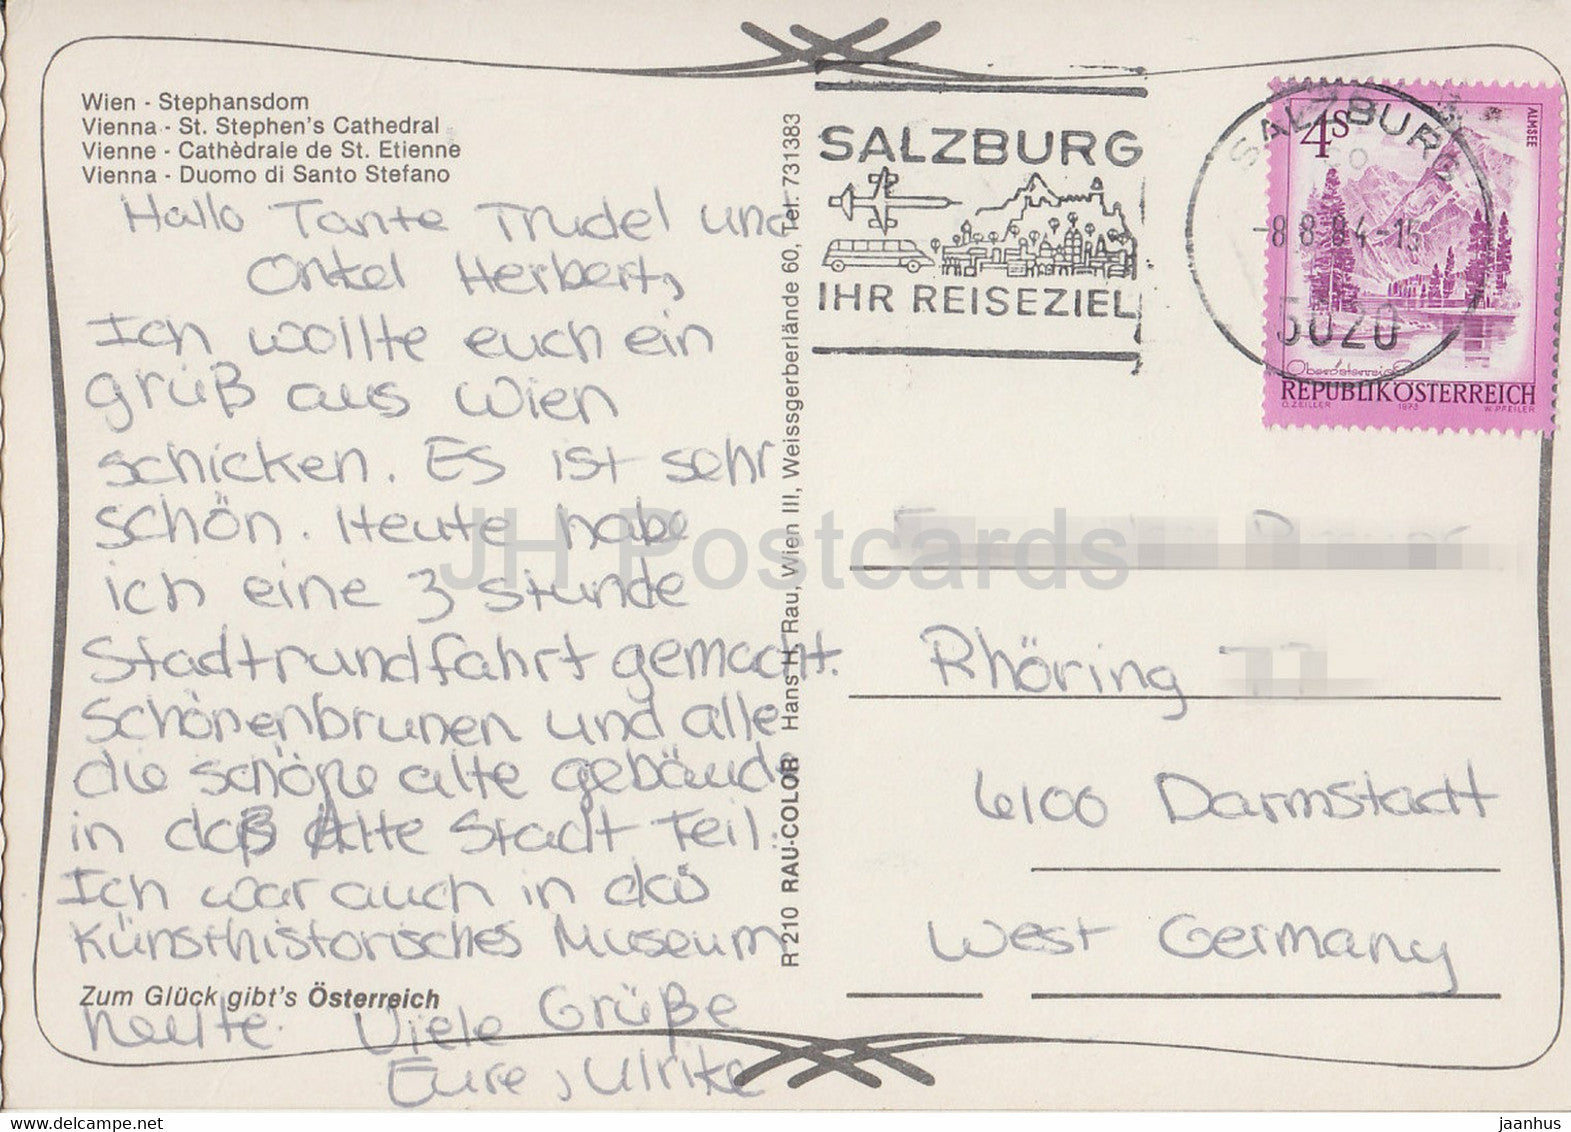 Wien - Stephansdom
Vienna - St. Stephen's Cathedral
Vienne - Cathèdrale de St. Etienne
Vienna - Duomo di Santo Stefano
Hallo Tante Trudel und
Onkel Herbert,
Ich wollte euch ein
grüß aus Wien
schicken. Es ist sehr
schön. Heute habe
ich eine 3 stunde
Stadtrundfahrt gemacht.
Schönenbrunen und alle
die schöne alte gebäude
in daß Alte Stadt Teil.
Ich war auch in das
Künsthistorisches Museum
Zum Glück gibt's Österreich
heute. Viele Grüße
Eure, Ulrike
R 210 RAU-COLOR Hans H. Rau, Wien III, Weissgerberlände 60, Tel. 731383
SALZBURG
IHR REISEZIEL
SALZBURG
-8.8.84-15
5020
4S
ALMSEE
Oberösterreich
REPUBLIK ÖSTERREICH
O.ZEILLER 1973 W.PFEILER
Rhöring
6100 Darmstadt
West Germany
JH Postcards
www.delcampe.net
jaanhus